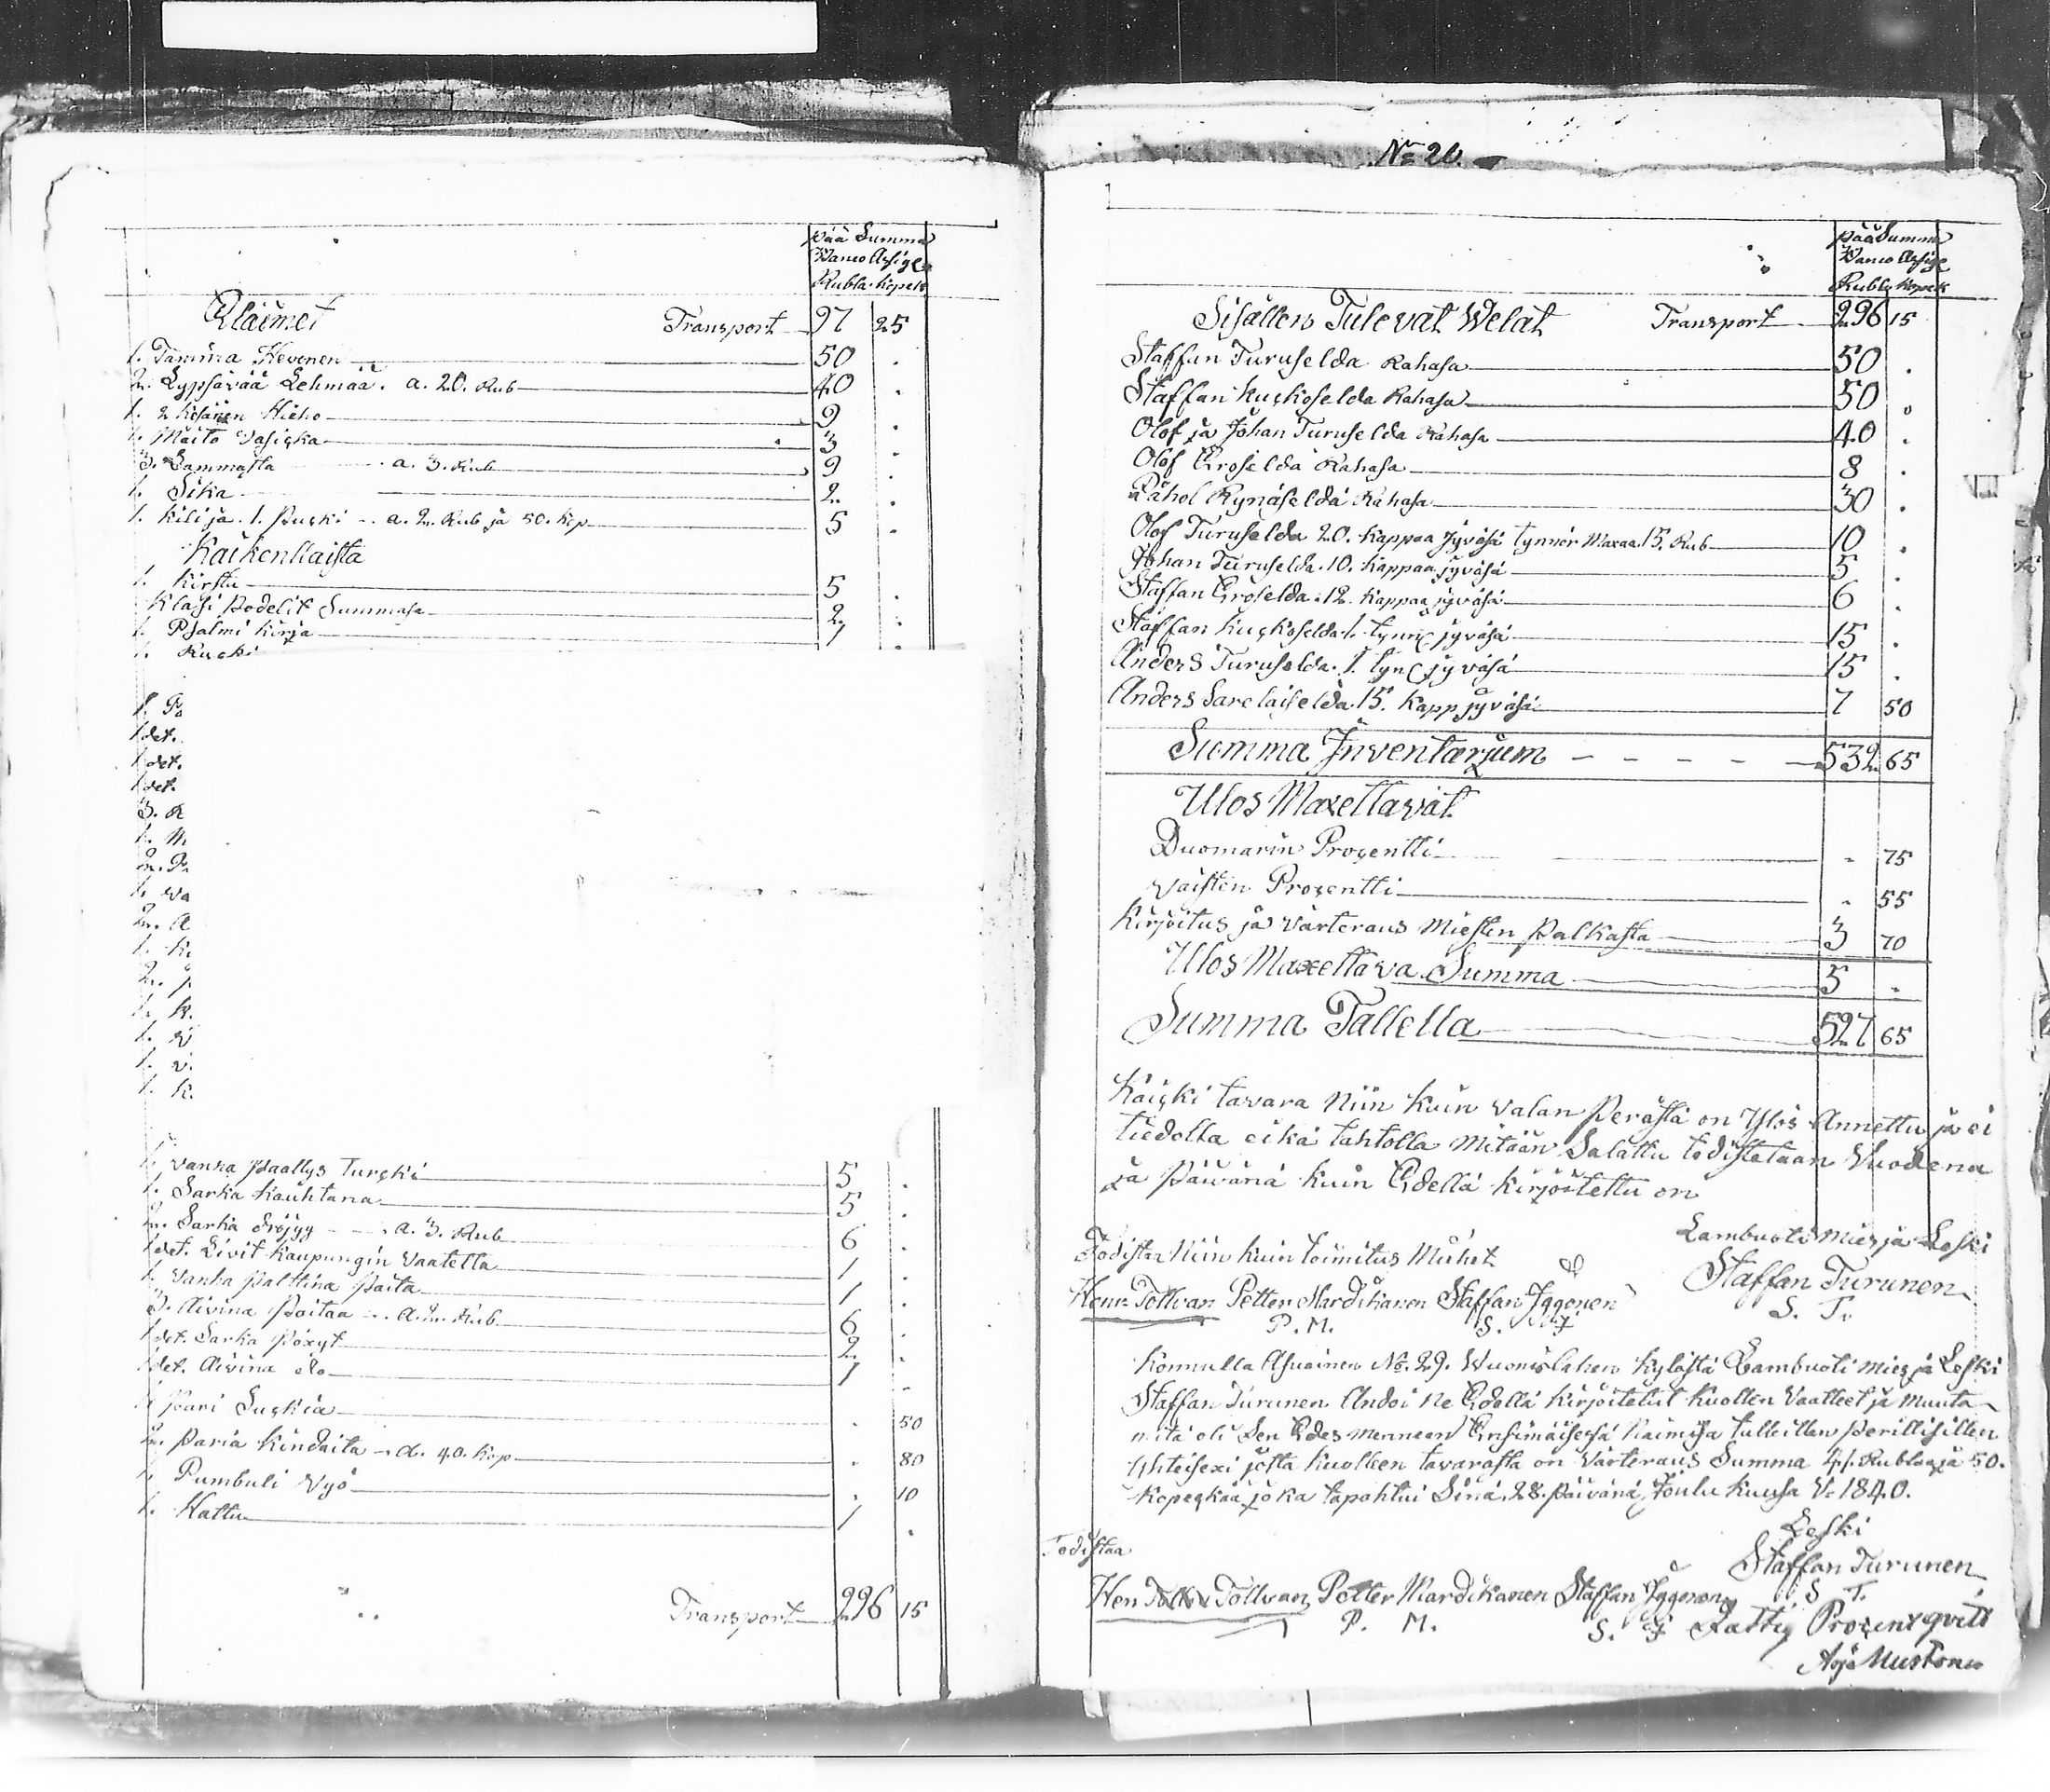 pää Summa
Banco Assigs
Rubla kopek
Eläimet Transport 97 25
1. Tamma Hevonen 50 .
2. Lypsävää Lehmää. a. 20. Rub 40 .
1. 2 kesäinen Hieho 9 .
1. Maito Vasicka 3 .
3. Lammasta a. 3. Rub 9 .
1. Sika 2 .
1. kili ja. 1. Pucki a. 2. Rub ja 50. kop 5 .
Kaikenllaista
1. kirstu 5 .
Klasi Podelit Summasa 2 .
1. Psalmi kirja 1 .
1. Rucki
1. Pa
1 det.
1 det.
1 det.
3. R
1. M
2. Pa
1. Va
2. A
1. K
2. p
1. K.
1. V
1. V.
1. K.
1. Vanha Päällys Turcki 5 .
1. Sarka kauhtana 5 .
2. Sarka dröjyy a. 3. Rub 6 .
1 det. Livit kaupungin Vaatetta 1 .
1. Vanha Palttina Paita 1 .
3. Aivina Paitaa a. 2. Rub 6 .
1 det. Sarka Pöxyt 2 .
1 det. Aivina do 1 .
1 Pari Suckia . 50
2. Paria kindaita a. 40. kop . 80
1. Pumbuli Vyö . 10
1. Hattu 1 .
Transport 296 15
No 20.
pää Summa
Banco Assigs
Rubla kopek
Sisällen Tulevat Welat Transport 296 15
Staffan Turuselda Rahasa 50 .
Staffan kuckoselda Rahasa 50 .
Olof ja Johan Turuselda Rahasa 40 .
Olof Eroselda Rahasa 8 .
Påhol Rynäselda Rahasa 30 .
Olof Turuselda 20. kappaa Jyväsä tynnör Maxaa 15. Rub 10 .
Johan Turuselda. 10. kappaa jyväsä 5 .
Staffan Eroselda. 12. kappaa jyväsä 6 .
Staffan kuckoselda 1. tynn jyväsä 15 .
Anders Turuselda. 1. tyn jyväsä 15 .
Anders Sarelaiselda 15. kapp jyväsä 7 50
Summa Inventarjum 532 65
Ulos Maxettavat
Duomarin Procentti - 75
Vaisten Procentti - 55
kirjoitus ja Värteraus Miesten Palkasta 3 70
Ulos Maxettava Summa 5 -
Summa Tallella 527 65
Kaicki tavara Niin kuin Valan Perästä on Ylös Annettu ja ei
tiedolla eikä tahtolla Mitään Salattu todistetaan Vuodena
ja Päivänä kuin Edellä kirjoitettu on
Lambuoti Mies ja Leski
Todistaa Niin kuin toimitus Miehet
Staffan Turunen
S. T.
Henr Tollvan Petter Mardikanen Staffan Iggonen
P. M. S. I
konnulla Asuainen No. 29. Wuonislahen kylästä Lambuoti Mies ja Leski
Staffan Turunen Andoi Ne Edellä kirjoitetut kuollen Vaatteet ja Muuta
mitä oli Sen Edes menneen Ensimäisesä Naimisa tulleillen Perillisillen
Yhteisexi josta kuolleen tavarasta on Värteraus Summa 41. Rublaa ja 50.
kopeckaa joka tapahtui Sinä. 28. päivänä Joulu kuusa V. 1840.
Leski
Todistaa
Staffan Turunen
S T.
Hen Tollvan Petter Mardikanen Staffan Iggonen
P. M. S. I
Fattig Procent qvitt
Mustonen